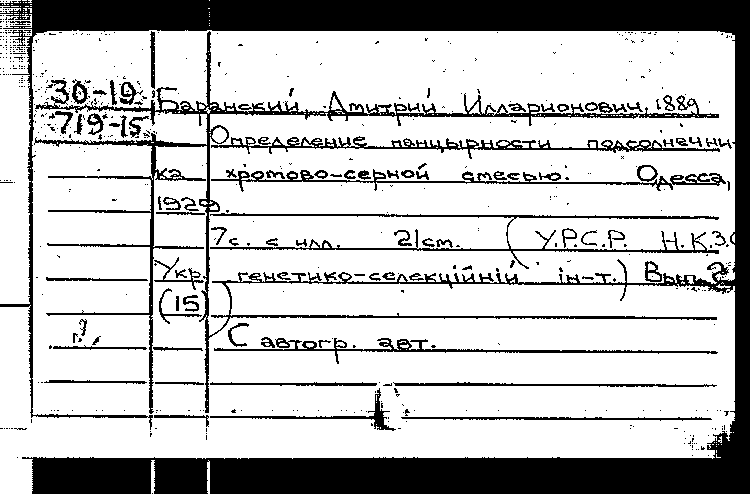 30-19 Баранский, Дмитрий Илларионович, 1889
719-15 Определение панцырности подсолнечни-
ка хромово-серной смесью. Одесса,
1929.
7с. с илл. 21см. (У.Р.С.Р. Н.К.З.
Укр. генетико-селекційній ін-т.) Вып.
(15)
С автогр. авт.